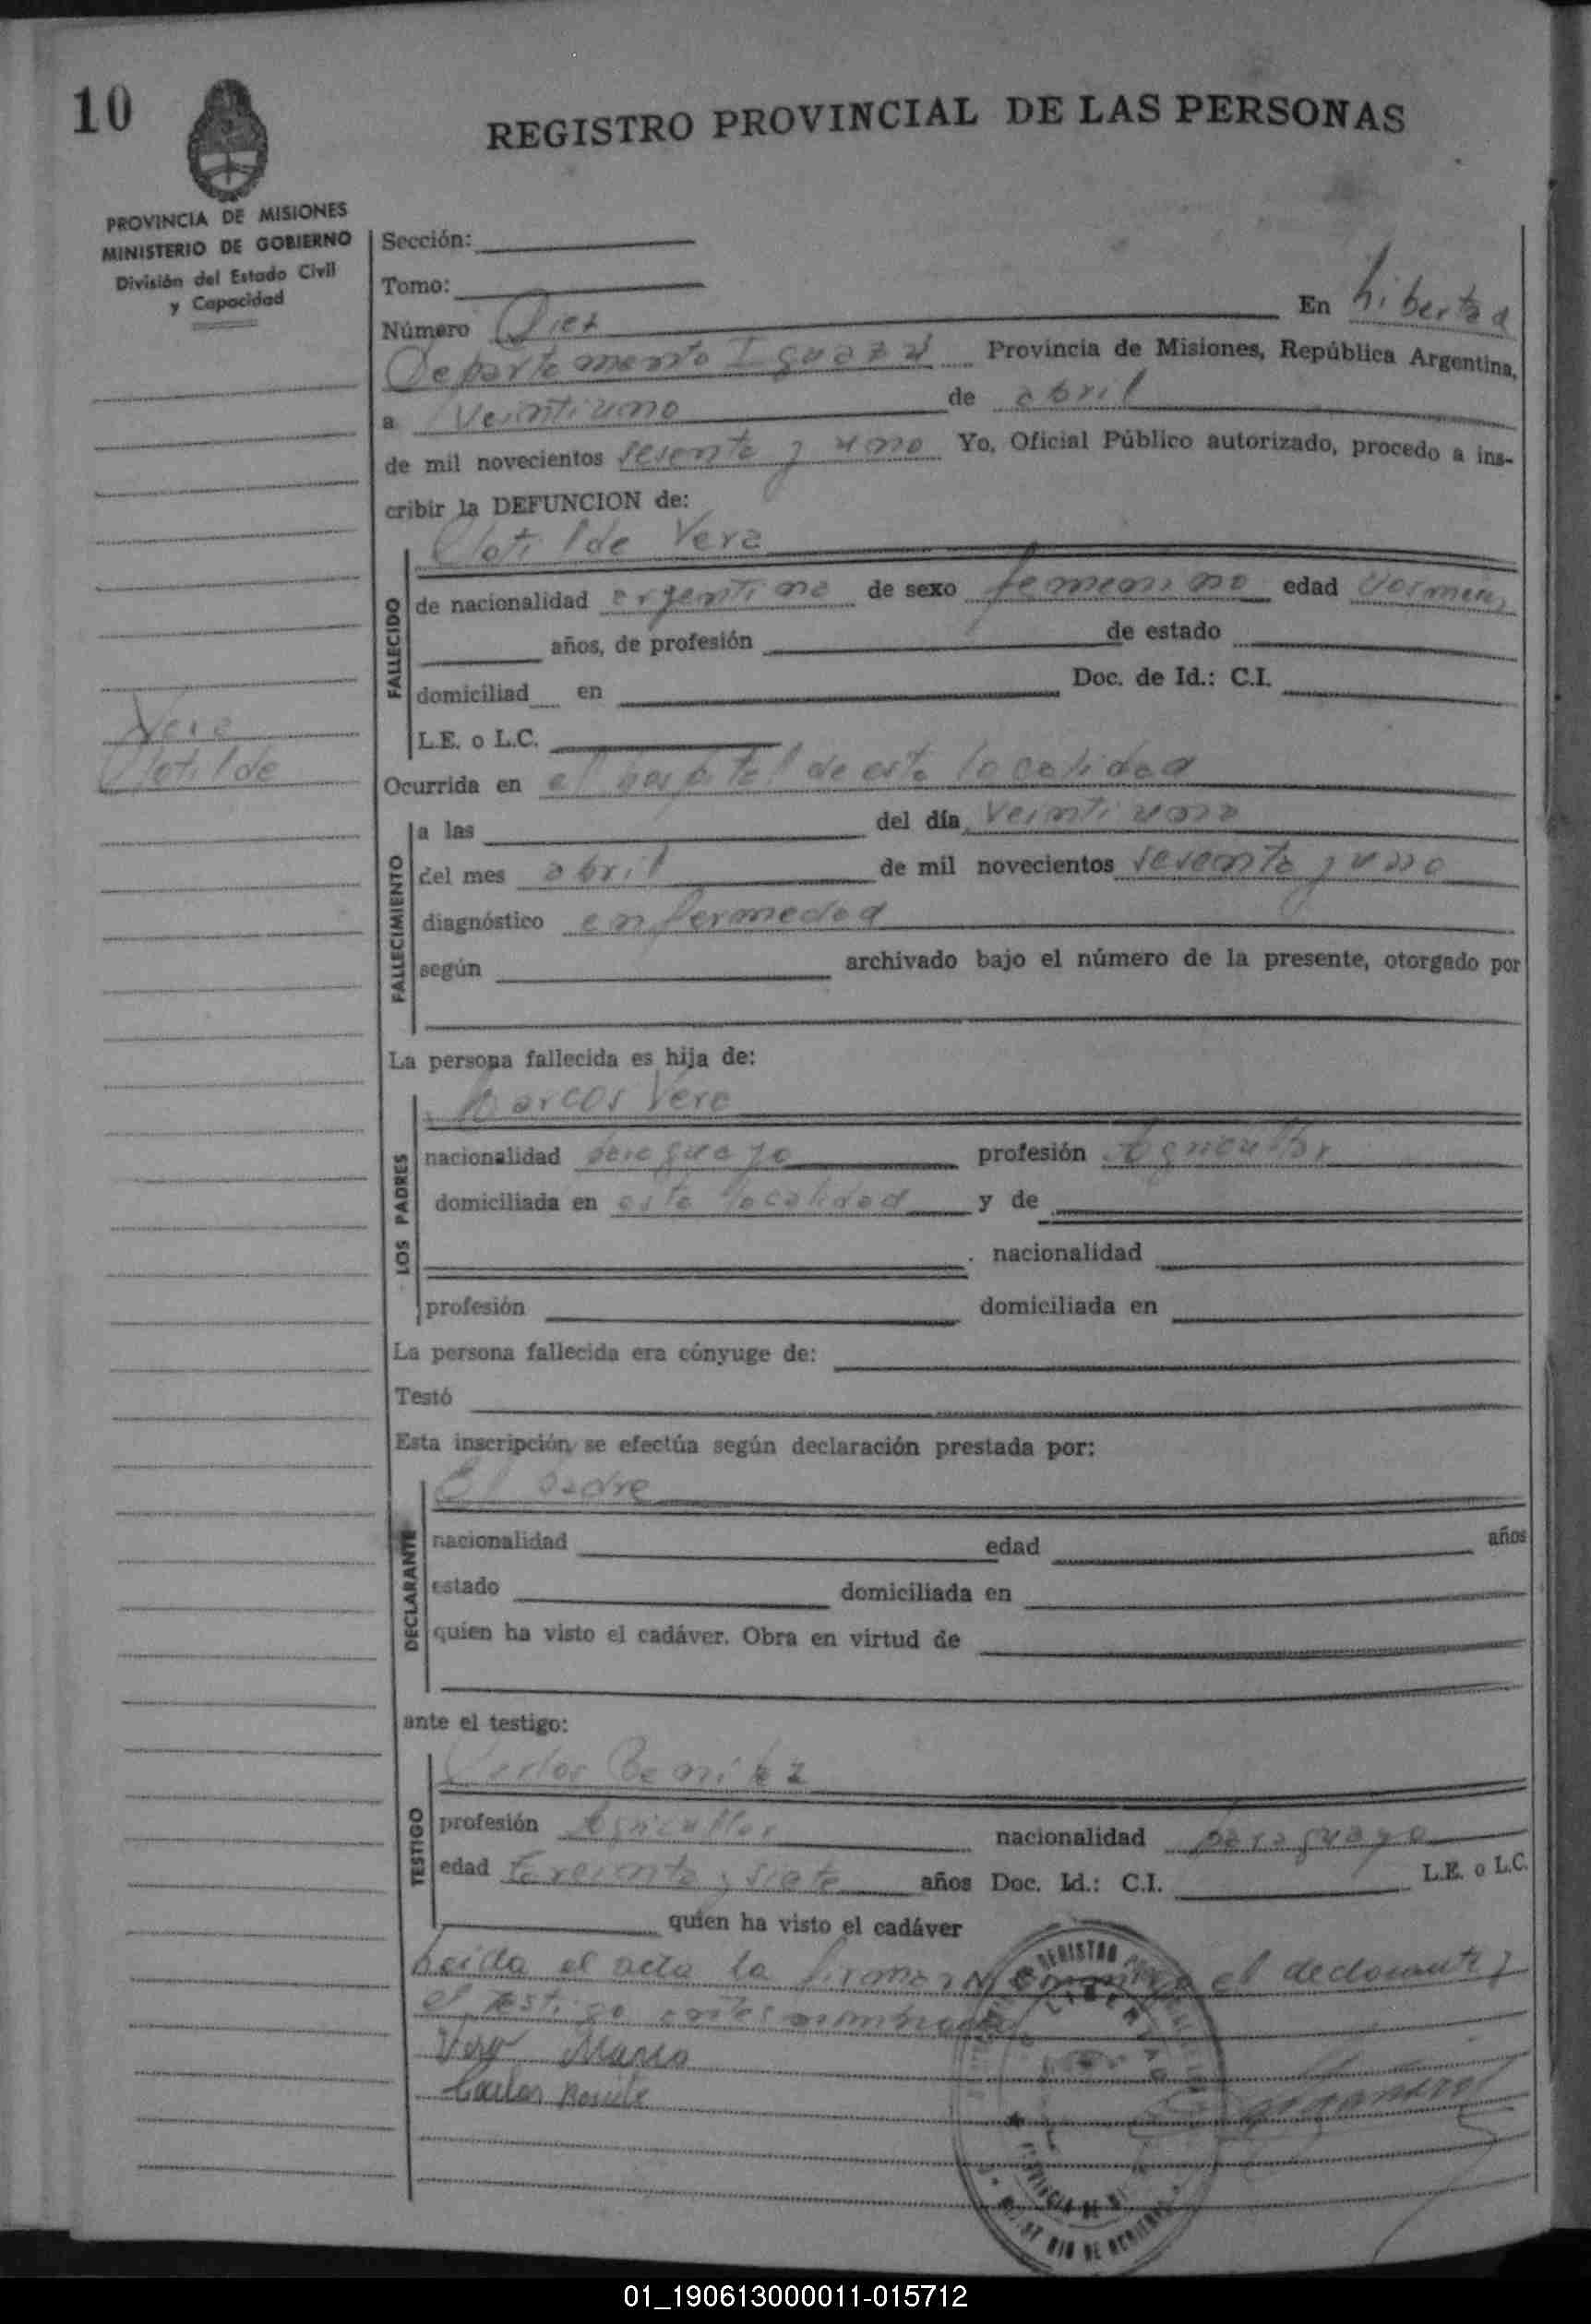 10
REGISTRO PROVINCIAL DE LAS PERSONAS
PROVINCIA DE MISIONES
MINISTERIO DE GOBIERNO
División del Estado Civil
y Capacidad
Vera
Clotilde
Sección:
Tomo:
Número Diez En Libertad
Departamento Iguazú Provincia de Misiones, República Argentina,
a veintiuno de abril
de mil novecientos sesenta y uno Yo, Oficial Público autorizado, procedo a ins-
cribir la DEFUNCION de:
Clotilde Vera
FALLECIDO
de nacionalidad argentina de sexo femenino edad dos meses
años, de profesión de estado
domiciliad en Doc. de Id.: C.I.
L.E. o L.C.
Ocurrida en el hospital de esta localidad
FALLECIMIENTO
a las del día veintiuno
del mes abril de mil novecientos sesenta y uno
diagnóstico enfermedad
según archivado bajo el número de la presente, otorgado por
La persona fallecida es hija de:
Marcos Vera
LOS PADRES
nacionalidad paraguayo profesión Agricultor
domiciliada en esta localidad y de
nacionalidad
profesión domiciliada en
La persona fallecida era cónyuge de:
Testó
Esta inscripción se efectúa según declaración prestada por:
El padre
DECLARANTE
nacionalidad edad años
estado domiciliada en
quien ha visto el cadáver. Obra en virtud de
ante el testigo:
Carlos Benitez
TESTIGO
profesión Agricultor nacionalidad paraguayo
edad treinta y siete años Doc. Id.: C.I. L.E. o L.C.
quien ha visto el cadáver
Leida el acta la firman conmigo el declarante y
el testigo antes nombrado
Vera
Carlos
REGISTRO
LIBERTAD
PROVINCIA DE
01_190613000011-015712